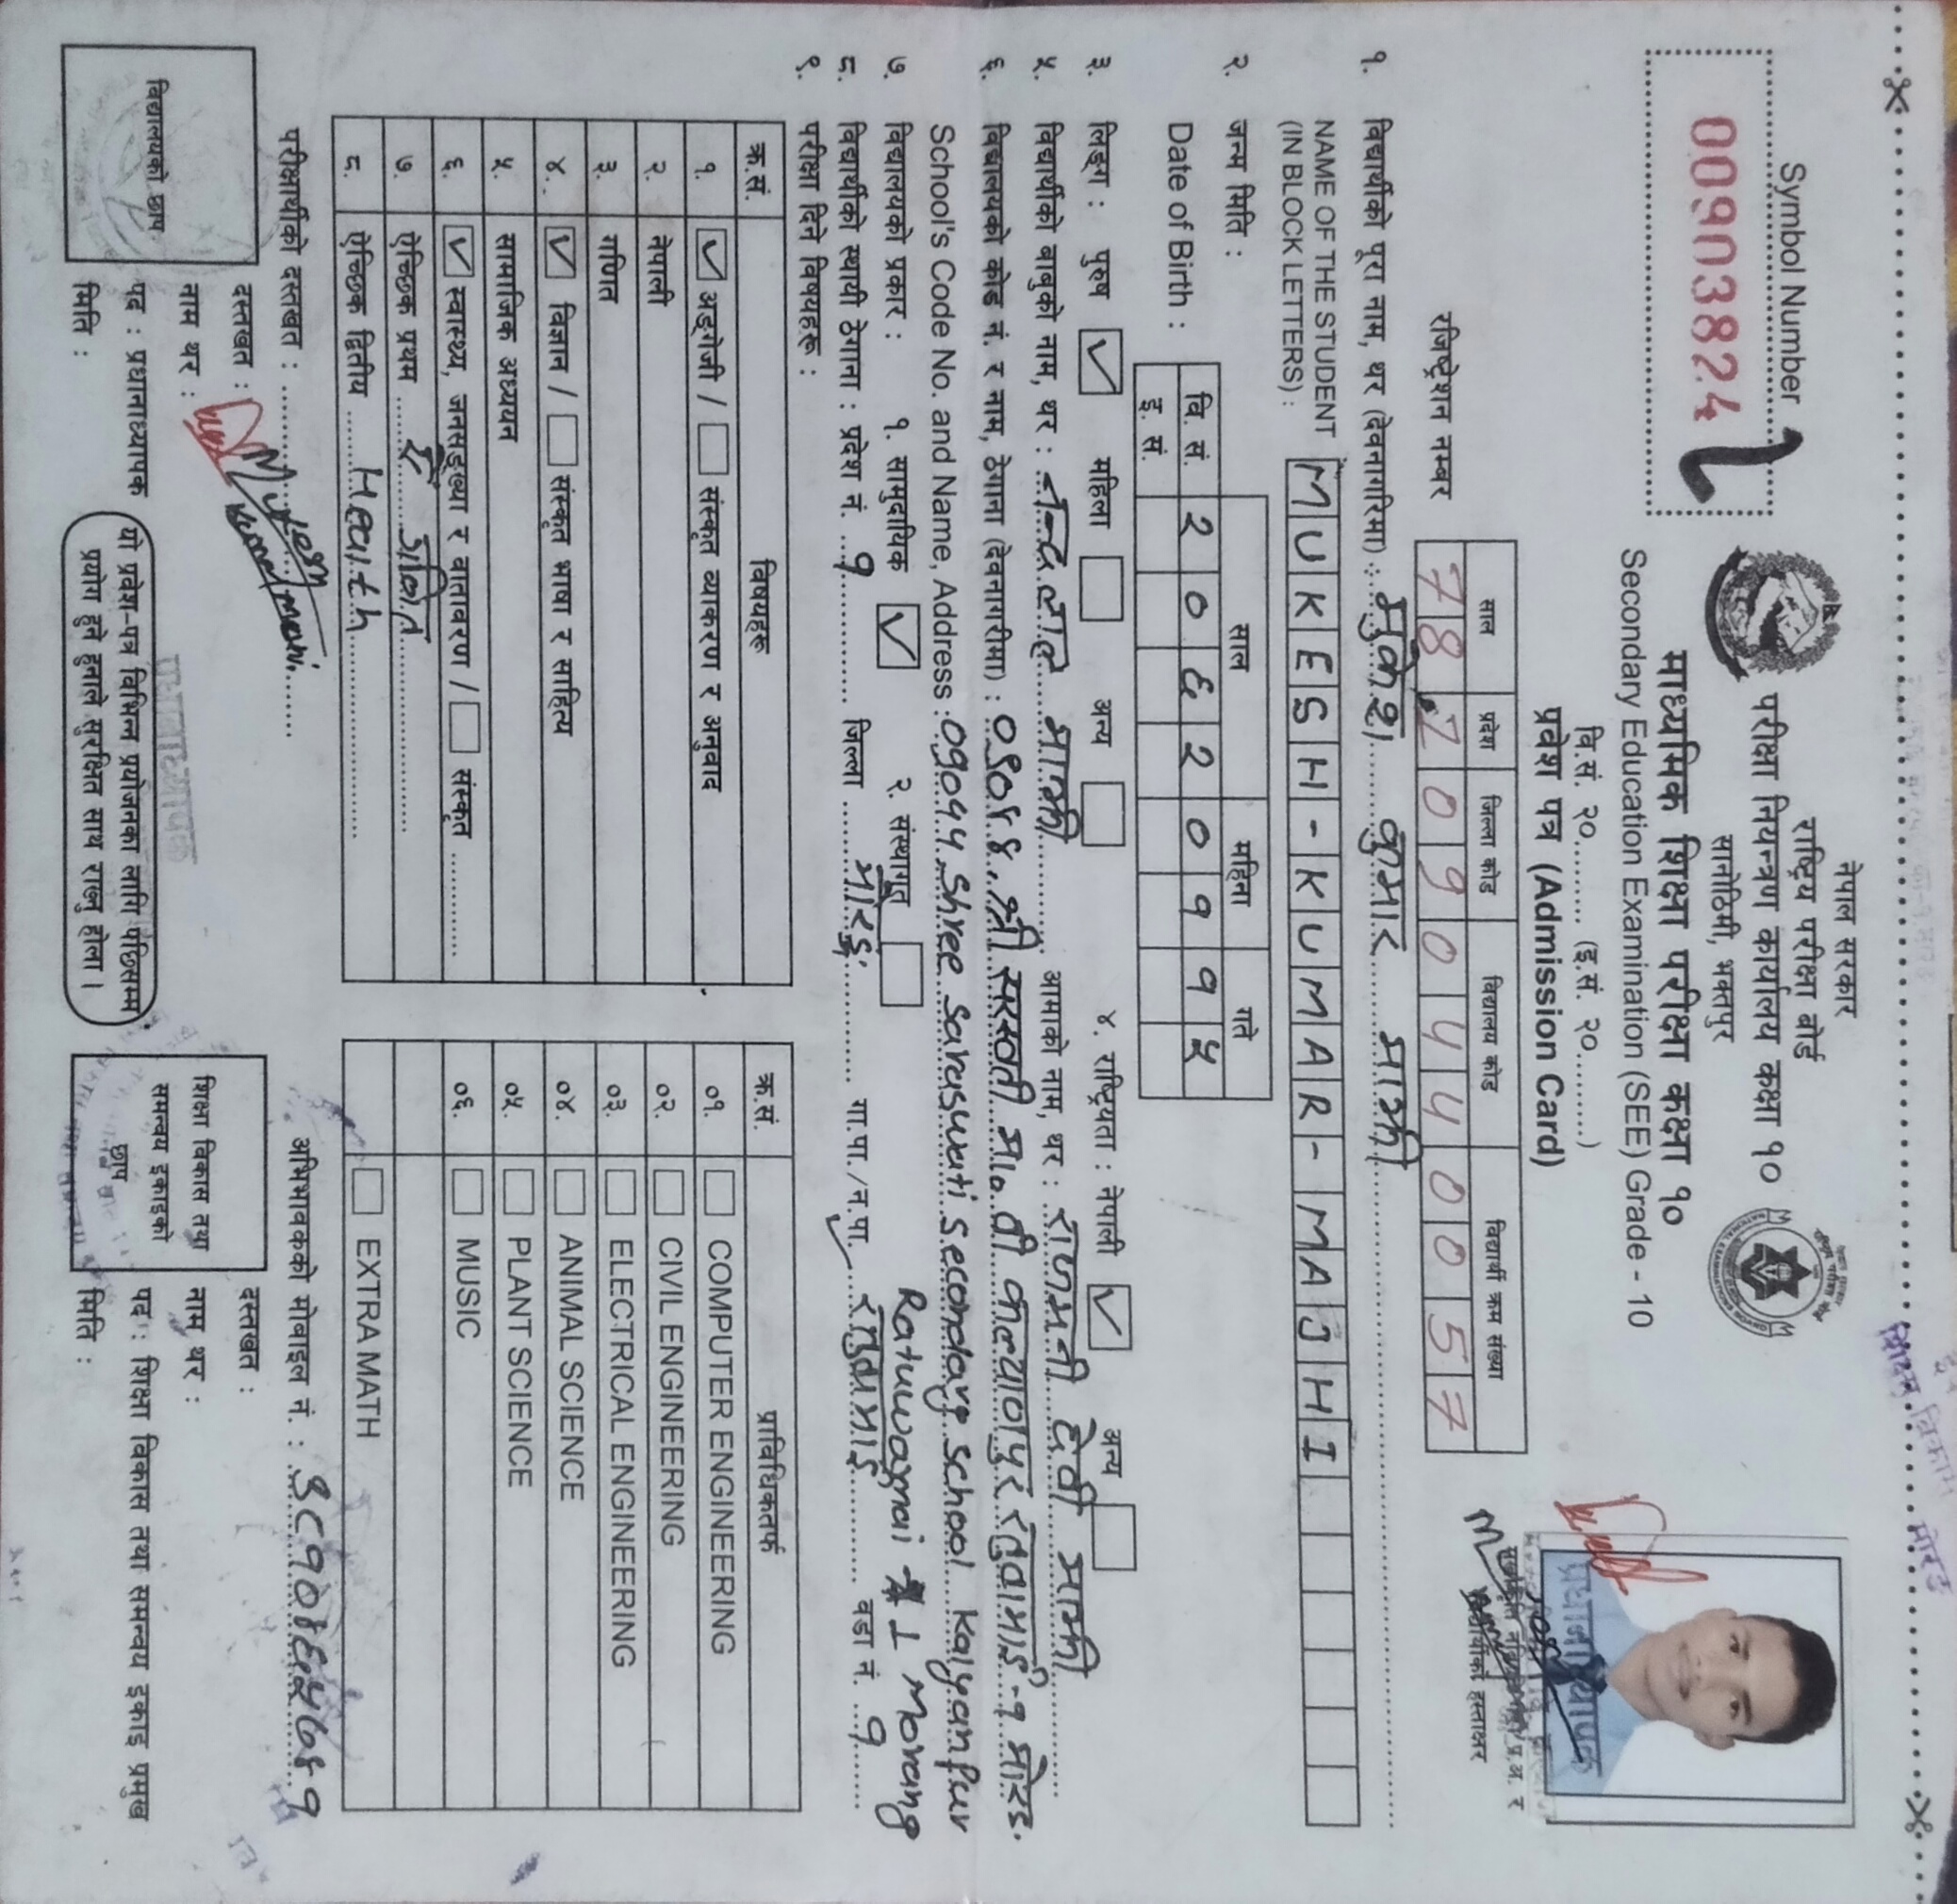 शिक्षा विकास
मोरङ
नेपाल सरकार
राष्ट्रिय परीक्षा बोर्ड
परीक्षा नियन्त्रण कार्यालय कक्षा १०
सानोठिमी, भक्तपुर
माध्यमिक शिक्षा परीक्षा कक्षा १०
Secondary Education Examination (SEE) Grade - 10
वि.सं. २०......... (इ.सं. २०.........)
प्रवेश पत्र (Admission Card)
Symbol Number
00903824
प्रधानाध्यापक
प्र.अ. र
विद्यार्थीको हस्ताक्षर
साल प्रदेश जिल्ला कोड विद्यालय कोड विद्यार्थी क्रम संख्या
रजिष्ट्रेशन नम्बर 7 8 1 0 9 0 4 4 0 0 5 7
१. विद्यार्थीको पूरा नाम, थर (देवनागरिमा) : मुकेश कुमार माझी
NAME OF THE STUDENT
(IN BLOCK LETTERS) : MUKESH-KUMAR-MAJHI
२. जन्म मिति : साल महिना गते
Date of Birth : वि. सं. २ ० ६ २ ० १ १ ५
इ. सं.
३. लिङ्ग : पुरुष ✓ महिला अन्य ४. राष्ट्रियता : नेपाली ✓ अन्य
५. विद्यार्थीको बाबुको नाम, थर : नन्दलाल माझी आमाको नाम, थर : राजमनी देवी माझी
६. विद्यालयको कोड नं. र नाम, ठेगाना (देवनागरीमा) : ०९०४४, श्री सरस्वती मा० वी कल्याणपुर रतुवामाई-१ मोरङ.
School's Code No. and Name, Address : 09044, Shree Saraswati Secondary School Kalyanpur
Ratuwamai 1 Morang
७. विद्यालयको प्रकार : १. सामुदायिक ✓ २. संस्थागत
८. विद्यार्थीको स्थायी ठेगाना : प्रदेश नं. १ जिल्ला मोरङ गा.पा./न.पा. रतुवामाई वडा नं. १
९. परीक्षा दिने विषयहरू :
क्र.सं. विषयहरू
१. ✓ अङ्ग्रेजी / संस्कृत व्याकरण र अनुवाद
२. नेपाली
३. गणित
४. ✓ विज्ञान / संस्कृत भाषा र साहित्य
५. सामाजिक अध्ययन
६. ✓ स्वास्थ्य, जनसङ्ख्या र वातावरण / संस्कृत .............
७. ऐच्छिक प्रथम ऐ गणित
८. ऐच्छिक द्वितीय Health
क्र.सं. प्राविधिकतर्फ
०१. COMPUTER ENGINEERING
०२. CIVIL ENGINEERING
०३. ELECTRICAL ENGINEERING
०४. ANIMAL SCIENCE
०५. PLANT SCIENCE
०६. MUSIC
EXTRA MATH
परीक्षार्थीको दस्तखत : Mukesh Kumar Majhi
अभिभावकको मोबाइल नं. : ९८१०४६५७४१
विद्यालयको छाप
दस्तखत :
नाम थर :
पद : प्रधानाध्यापक
मिति :
प्रधानाध्यापक
यो प्रवेश-पत्र विभिन्न प्रयोजनका लागि पछिसम्म
प्रयोग हुने हुनाले सुरक्षित साथ राख्नु होला ।
शिक्षा विकास तथा
समन्वय इकाइको
छाप
दस्तखत :
नाम थर :
पद : शिक्षा विकास तथा समन्वय इकाइ प्रमुख
मिति :